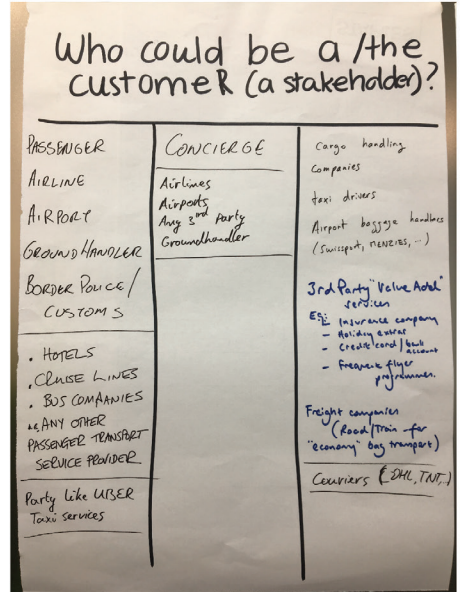 Who could be a /the
customer (a stakeholder)?
PASSENGER
AIRLINE
AIRPORT
GROUNDHANDLER
BORDER POLICE/
CUSTOMS
. HOTELS
. CRUISE LINES
. BUS COMPANIES
ANY OTHER
PASSENGER TRANSPORT
SERVICE PROVIDER
Party like UBER
Taxi services
CONCIERGE
Airlines
Airports
Any 3rd Party
Groundhandler
Cargo handling
Companies
taxi drivers
Airport baggage handlers
(Swissport, MENZIES, ...)
3rd Party "Value Added"
services
Eg: Insurance company
- Holiday extras
- Credit card / bank
account
- Frequent flyer
programmes.
Freight companies
(Road/Train - for
"economy" bag transport)
Couriers (DHL, TNT, ..)